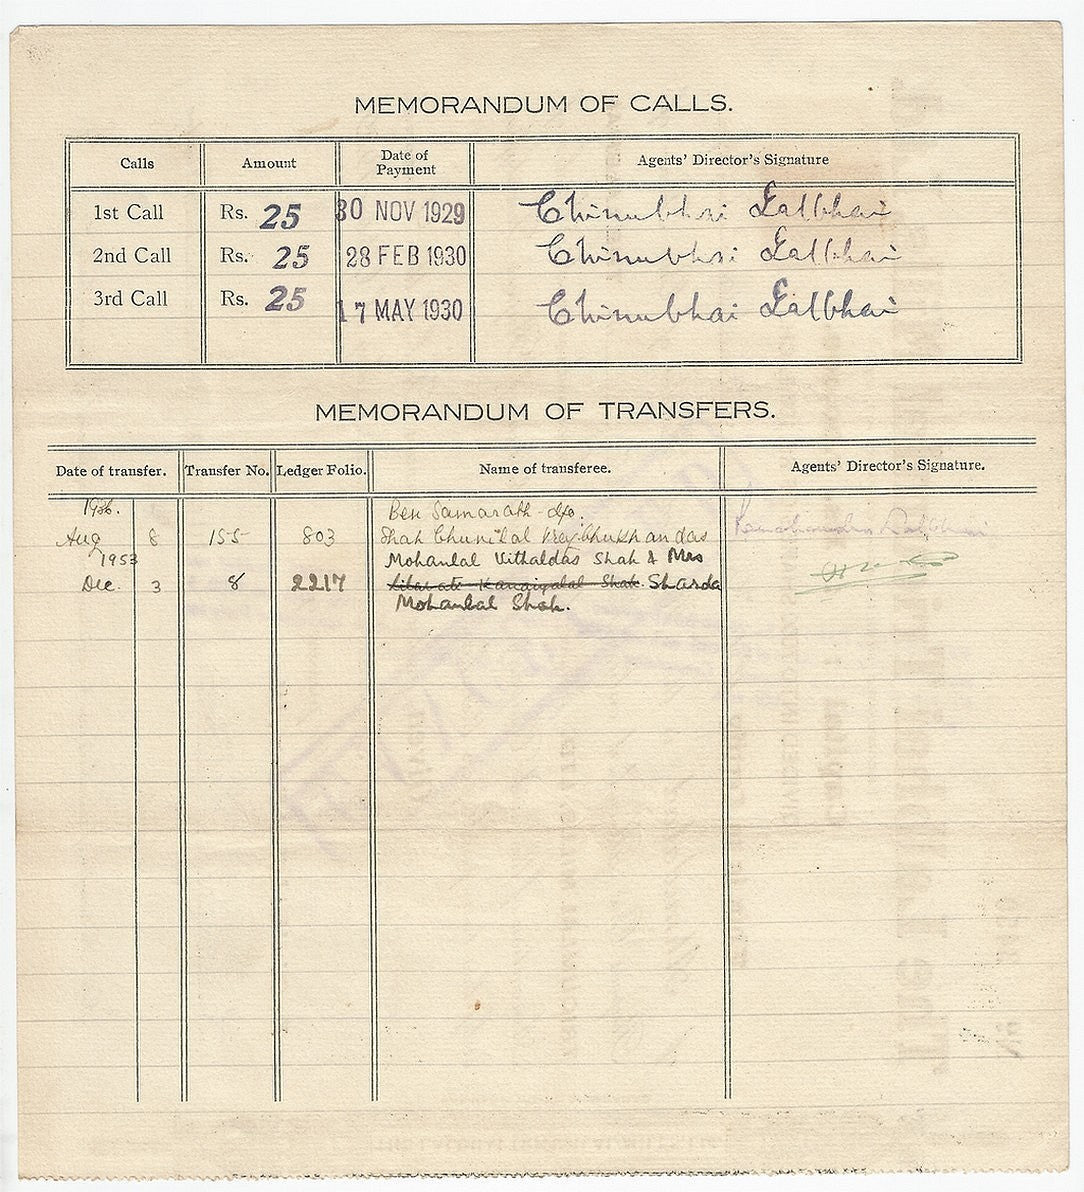 MEMORANDUM OF CALLS.
Calls Amount Date of Payment Agents' Director's Signature
1st Call Rs. 25 30 NOV 1929 Chinubhai Lalbhai
2nd Call Rs. 25 28 FEB 1930 Chinubhai Lalbhai
3rd Call Rs. 25 17 MAY 1930 Chinubhai Lalbhai
MEMORANDUM OF TRANSFERS.
Date of transfer. Transfer No. Ledger Folio. Name of transferee. Agents' Director's Signature.
Ben Samarath
Aug 8 155 803 Shah Chunilal Lalbhai
1953 Mohanlal Vithaldas Shah & Mrs
Dec. 3 8 2217 Kanaiyalal Shah. Sharda
Mohanlal Shah.